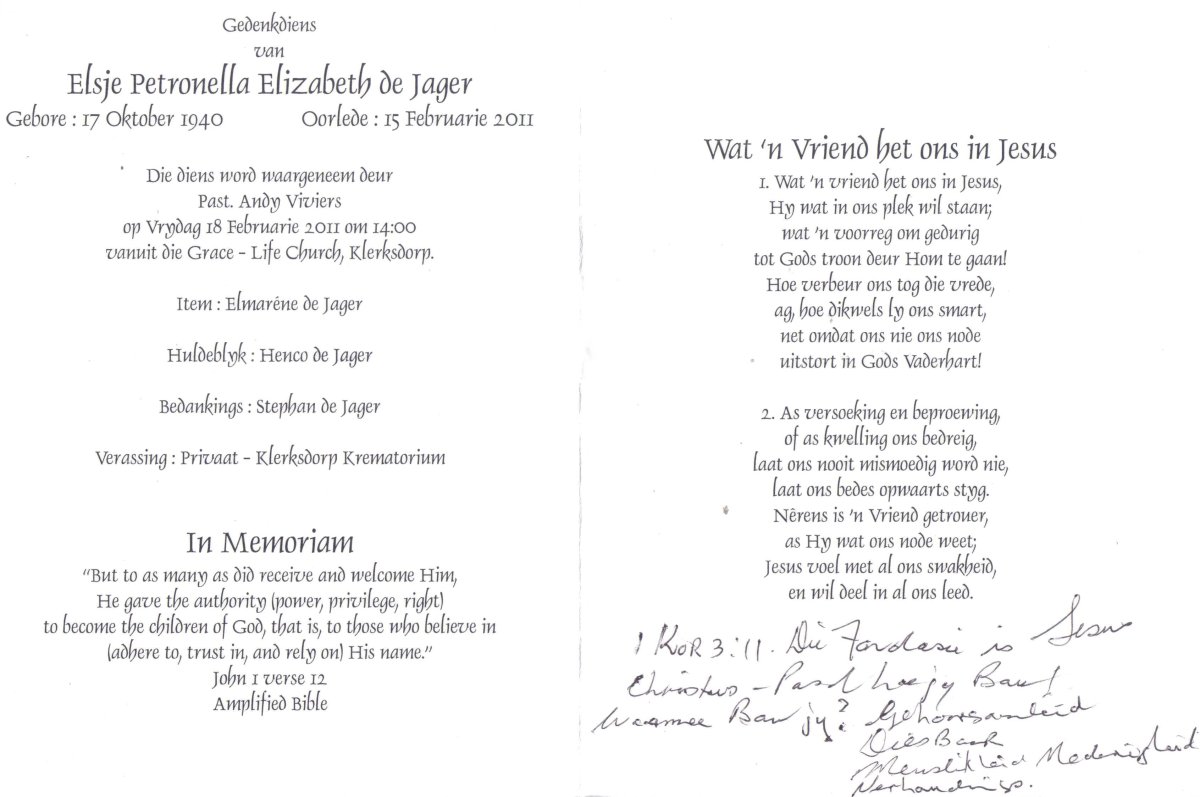 Gedenkdiens
van
Elsje Petronella Elizabeth de Jager
Gebore : 17 Oktober 1940 Oorlede : 15 Februarie 2011
Die diens word waargeneem deur
Past. Andy Viviers
op Vrydag 18 Februarie 2011 om 14:00
vanuit die Grace - Life Church, Klerksdorp.
Item : Elmaréne de Jager
Huldeblyk : Henco de Jager
Bedankings : Stephan de Jager
Verassing : Privaat - Klerksdorp Krematorium
In Memoriam
“But to as many as did receive and welcome Him,
He gave the authority (power, privilege, right)
to become the children of God, that is, to those who believe in
(adhere to, trust in, and rely on) His name.”
John 1 verse 12
Amplified Bible
Wat ‘n Vriend het ons in Jesus
1. Wat ‘n vriend het ons in Jesus,
Hy wat in ons plek wil staan;
wat ‘n voorreg om gedurig
tot Gods troon deur Hom te gaan!
Hoe verbeur ons tog die vrede,
ag, hoe dikwels ly ons smart,
net omdat ons nie ons node
uitstort in Gods Vaderhart!
2. As versoeking en beproewing,
of as kwelling ons bedreig,
laat ons nooit mismoedig word nie,
laat ons bedes opwaarts styg.
Nêrens is ‘n Vriend getrouer,
as Hy wat ons node weet;
Jesus voel met al ons swakheid,
en wil deel in al ons leed.
1 KOR 3:11. Die is Jesus
Christus - Pasop hoe jy Bou!
Waarmee Bou jy? Gehoorsaamheid
DiensBaar
Menslikheid
Verhoudings.